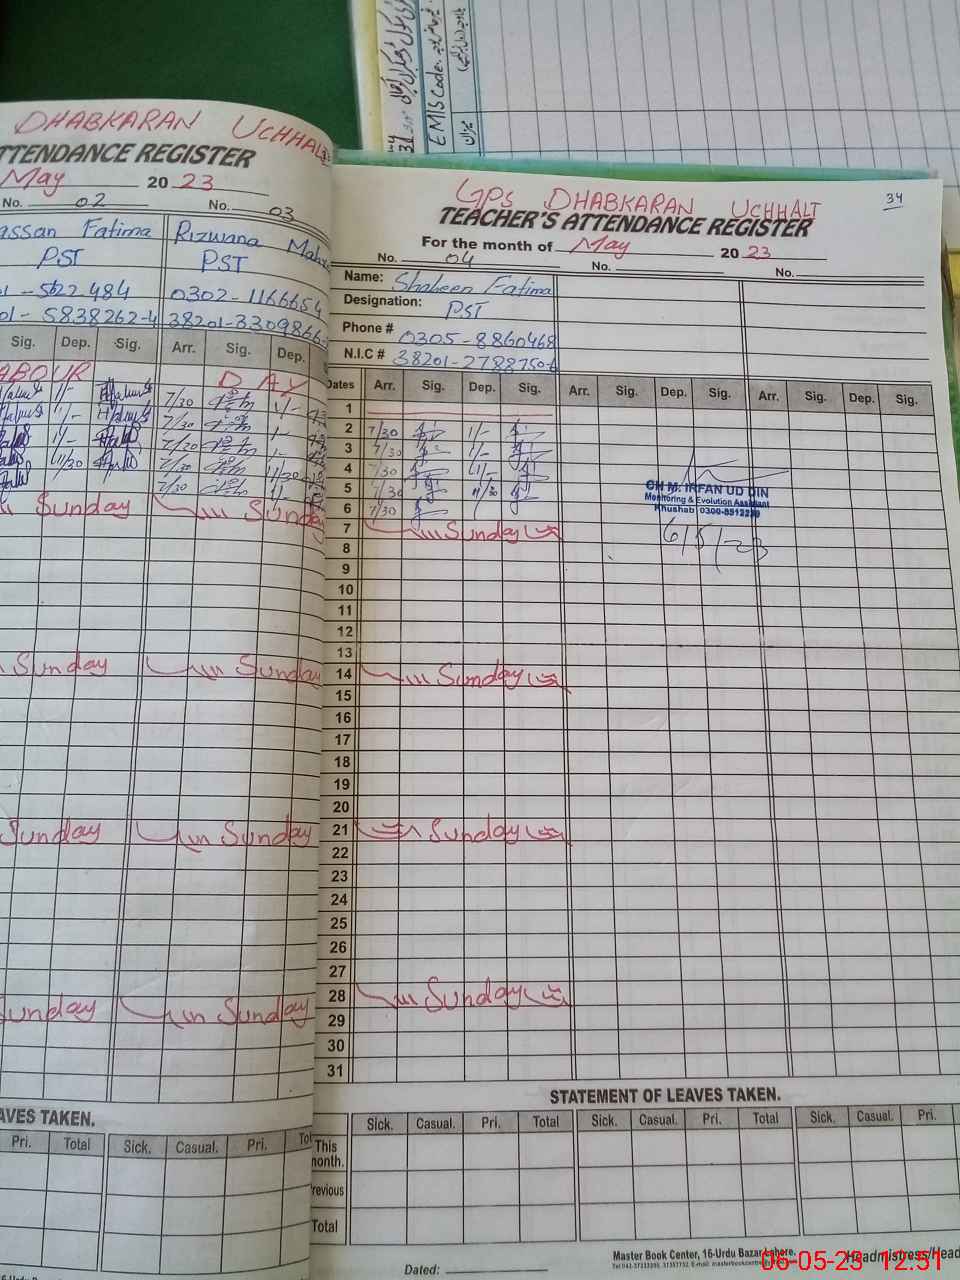 EMIS Code:
DHABKARAN UCHHALI
TTENDANCE REGISTER
May 2023
No. 02 No. 03
assan Fatima Rizwana
PST PST
01-5622484 0302-1166654
01-5838262-4 38201-3309866
Sig. Dep. Sig. Arr. Sig. Dep.
ABOUR DAY
1/- 7/30 1/-
1/- 7/30 1-
1/- 7/30 1-
11/30 7/30 11/30
7/30 1/-
Sunday Sunday
Sunday Sunday
Sunday Sunday
Sunday Sunday
AVES TAKEN.
Pri. Total Sick. Casual. Pri.
34
GPS DHABKARAN UCHHALI
TEACHER'S ATTENDANCE REGISTER
For the month of May 2023
No. 04 No. No.
Name: Shaheen Fatima
Designation: PST
Phone # 0305-8860468
N.I.C # 38201-2788750-6
Dates Arr. Sig. Dep. Sig. Arr. Sig. Dep. Sig. Arr. Sig. Dep. Sig.
1
2 7/30 1/-
3 7/30 1/-
4 7/30 1/-
5 7/30 11/30
6 7/30
CH M. IRFAN UD DIN
Monitoring & Evolution Assistant
Khushab 0300-8512239
6/5/-23
7 Sunday
8
9
10
11
12
13
14 Sunday
15
16
17
18
19
20
21 Sunday
22
23
24
25
26
27
28 Sunday
29
30
31
STATEMENT OF LEAVES TAKEN.
Sick. Casual. Pri. Total Sick. Casual. Pri. Total Sick. Casual. Pri.
This
month.
Previous
Total
Master Book Center, 16-Urdu Bazar Lahore.
Dated: Headmistress/Head
06-05-23 12:51